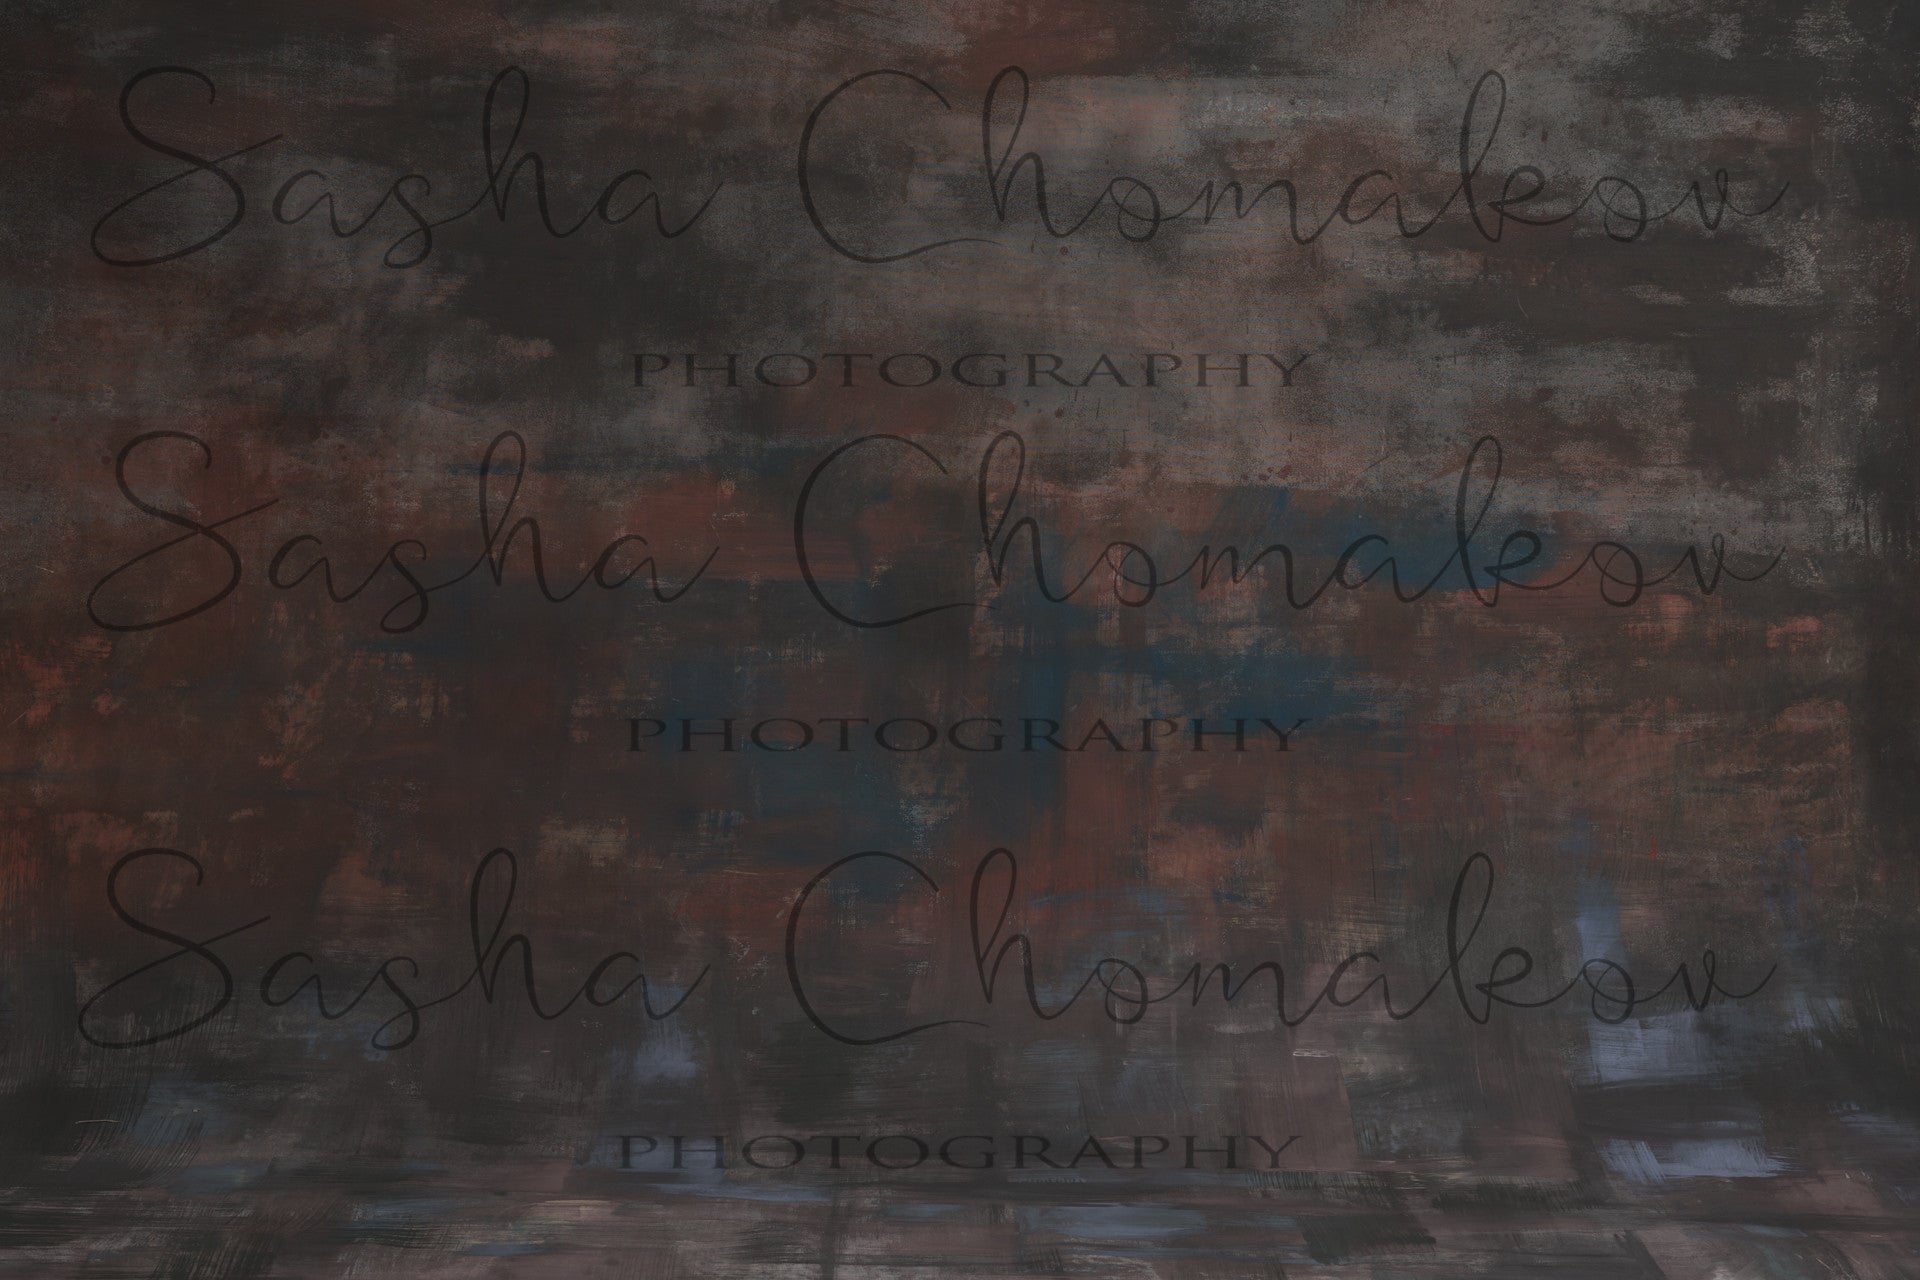 Sasha Chomakov
PHOTOGRAPHY
Sasha Chomakov
PHOTOGRAPHY
Sasha Chomakov
PHOTOGRAPHY